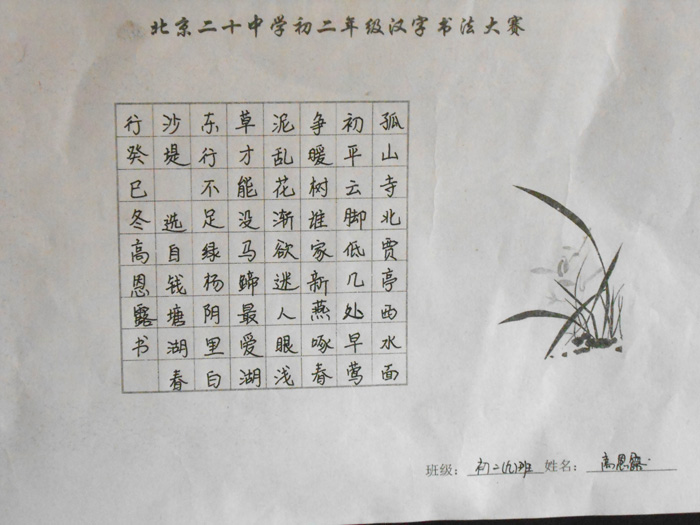 北京二十中学初二年级汉字书法大赛
孤山寺北贾亭西水面
初平云脚低几处早莺
争暖树谁家新燕啄春
泥乱花渐欲迷人眼浅
草才能没马蹄最爱湖
东行不足绿杨阴里白
沙堤 选自钱塘湖春
行癸巳冬高恩露书
班级：初二(九)班 姓名：高恩露